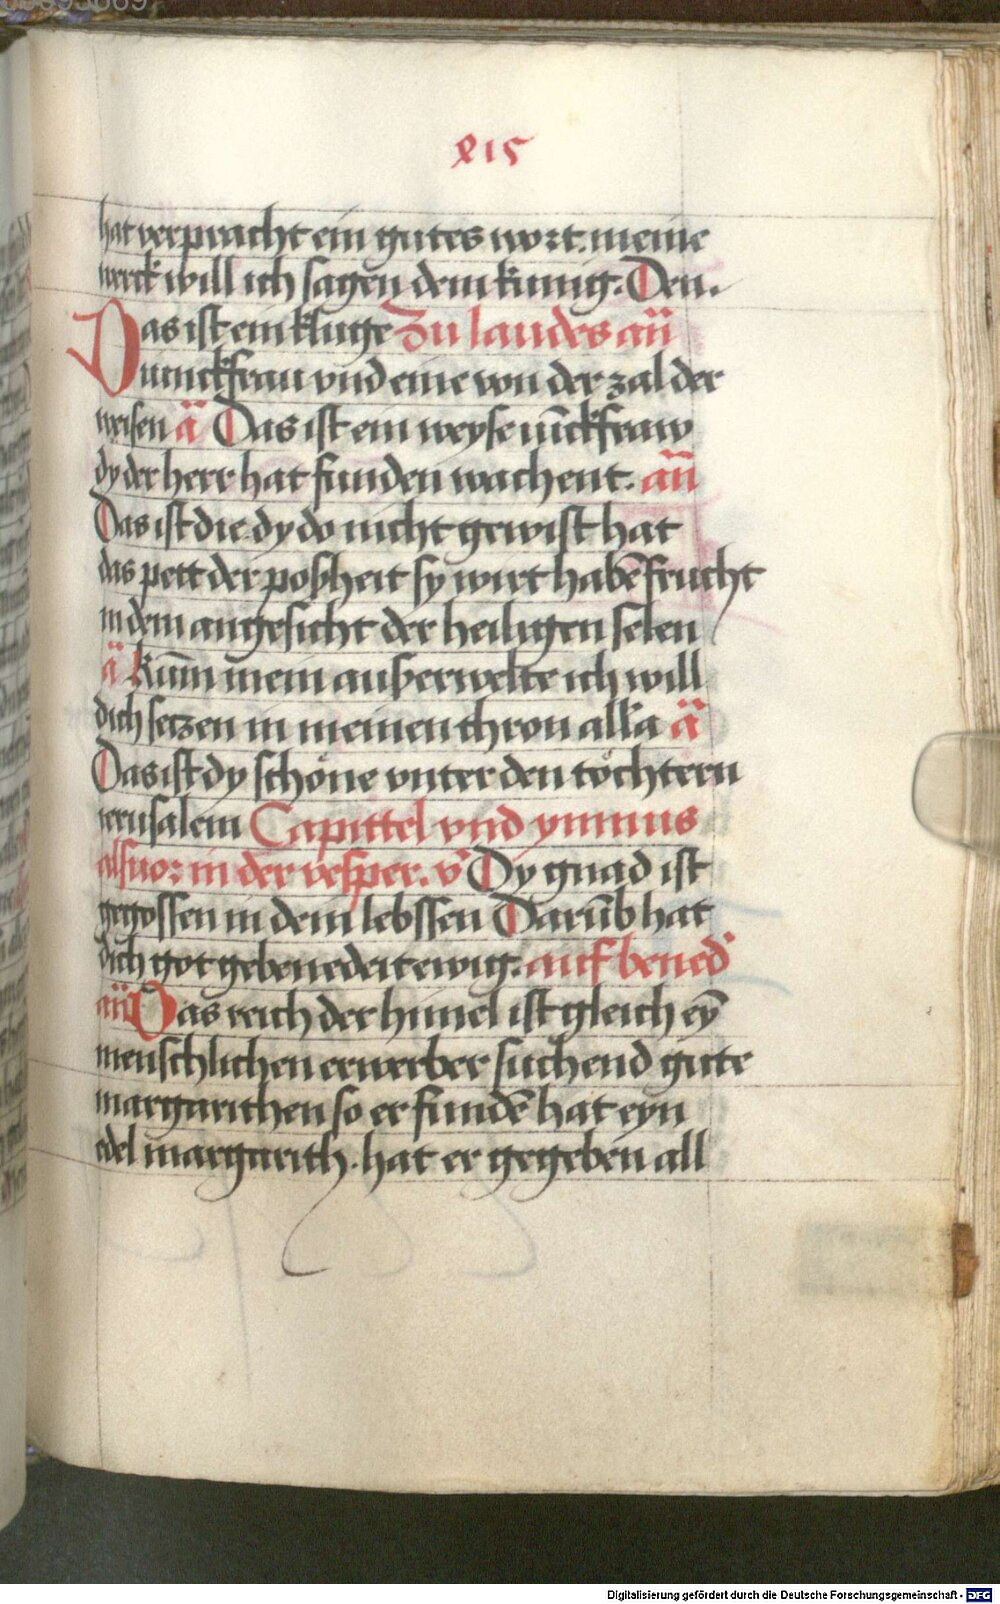 415
hat verpracht ein gutes wort. meine
werck will ich sagen dem kunig. Den.
Das ist ein kluge Zu laudes an̄
Junckfrau vnd eine von der zal der
weisen ā Das ist ein weyse iūckfraw
dy der herr hat funden wachent. an̄
Das ist die dy do nicht gewist hat
das pett der poßheit sy wirt habē frucht
in dem angesicht der heiligen selen
ā kum̄ mein außerwelte ich will
dich setzen in meinen thron alla ā
Das ist dy schöne vnter den töchtern
ierusalem Capittel vnd ymnus
als uor in der vesper. v̓ Dy gnad ist
gegossen in dein lebssen Darūb hat
dich got gebenedeit ewig. auf bened̓
an̄ Das reich der himel ist gleich eȳ
menschlichen erwerber suchend gute
margarithen so er fundē hat eyn
edel margarith. hat er gegeben all
Digitalisierung gefördert durch die Deutsche Forschungsgemeinschaft - DFG